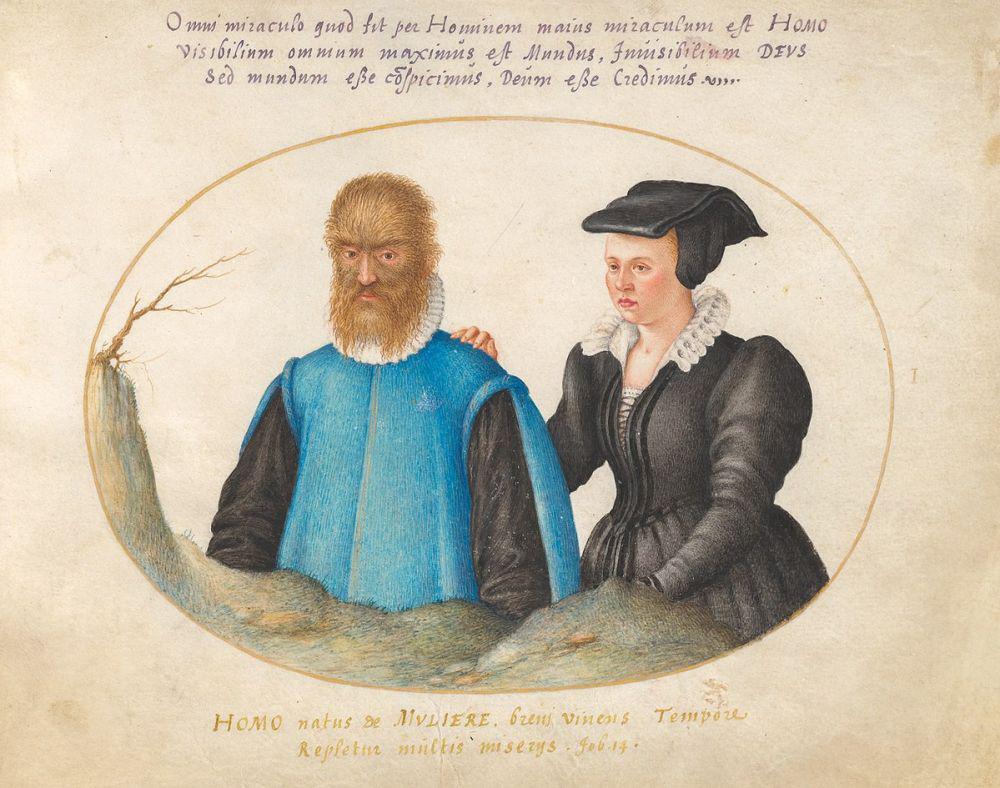 Omni miraculo quod fit per Hominem maius miraculum est HOMO
Visibilium omnium maximus est Mundus, Inuisibilium DEVS
Sed mundum eße cōspicimus, Deum eße Credimus
I
HOMO natus de MVLIERE. breui viuens Tempore
Repletur multis miserys. Job. 14.